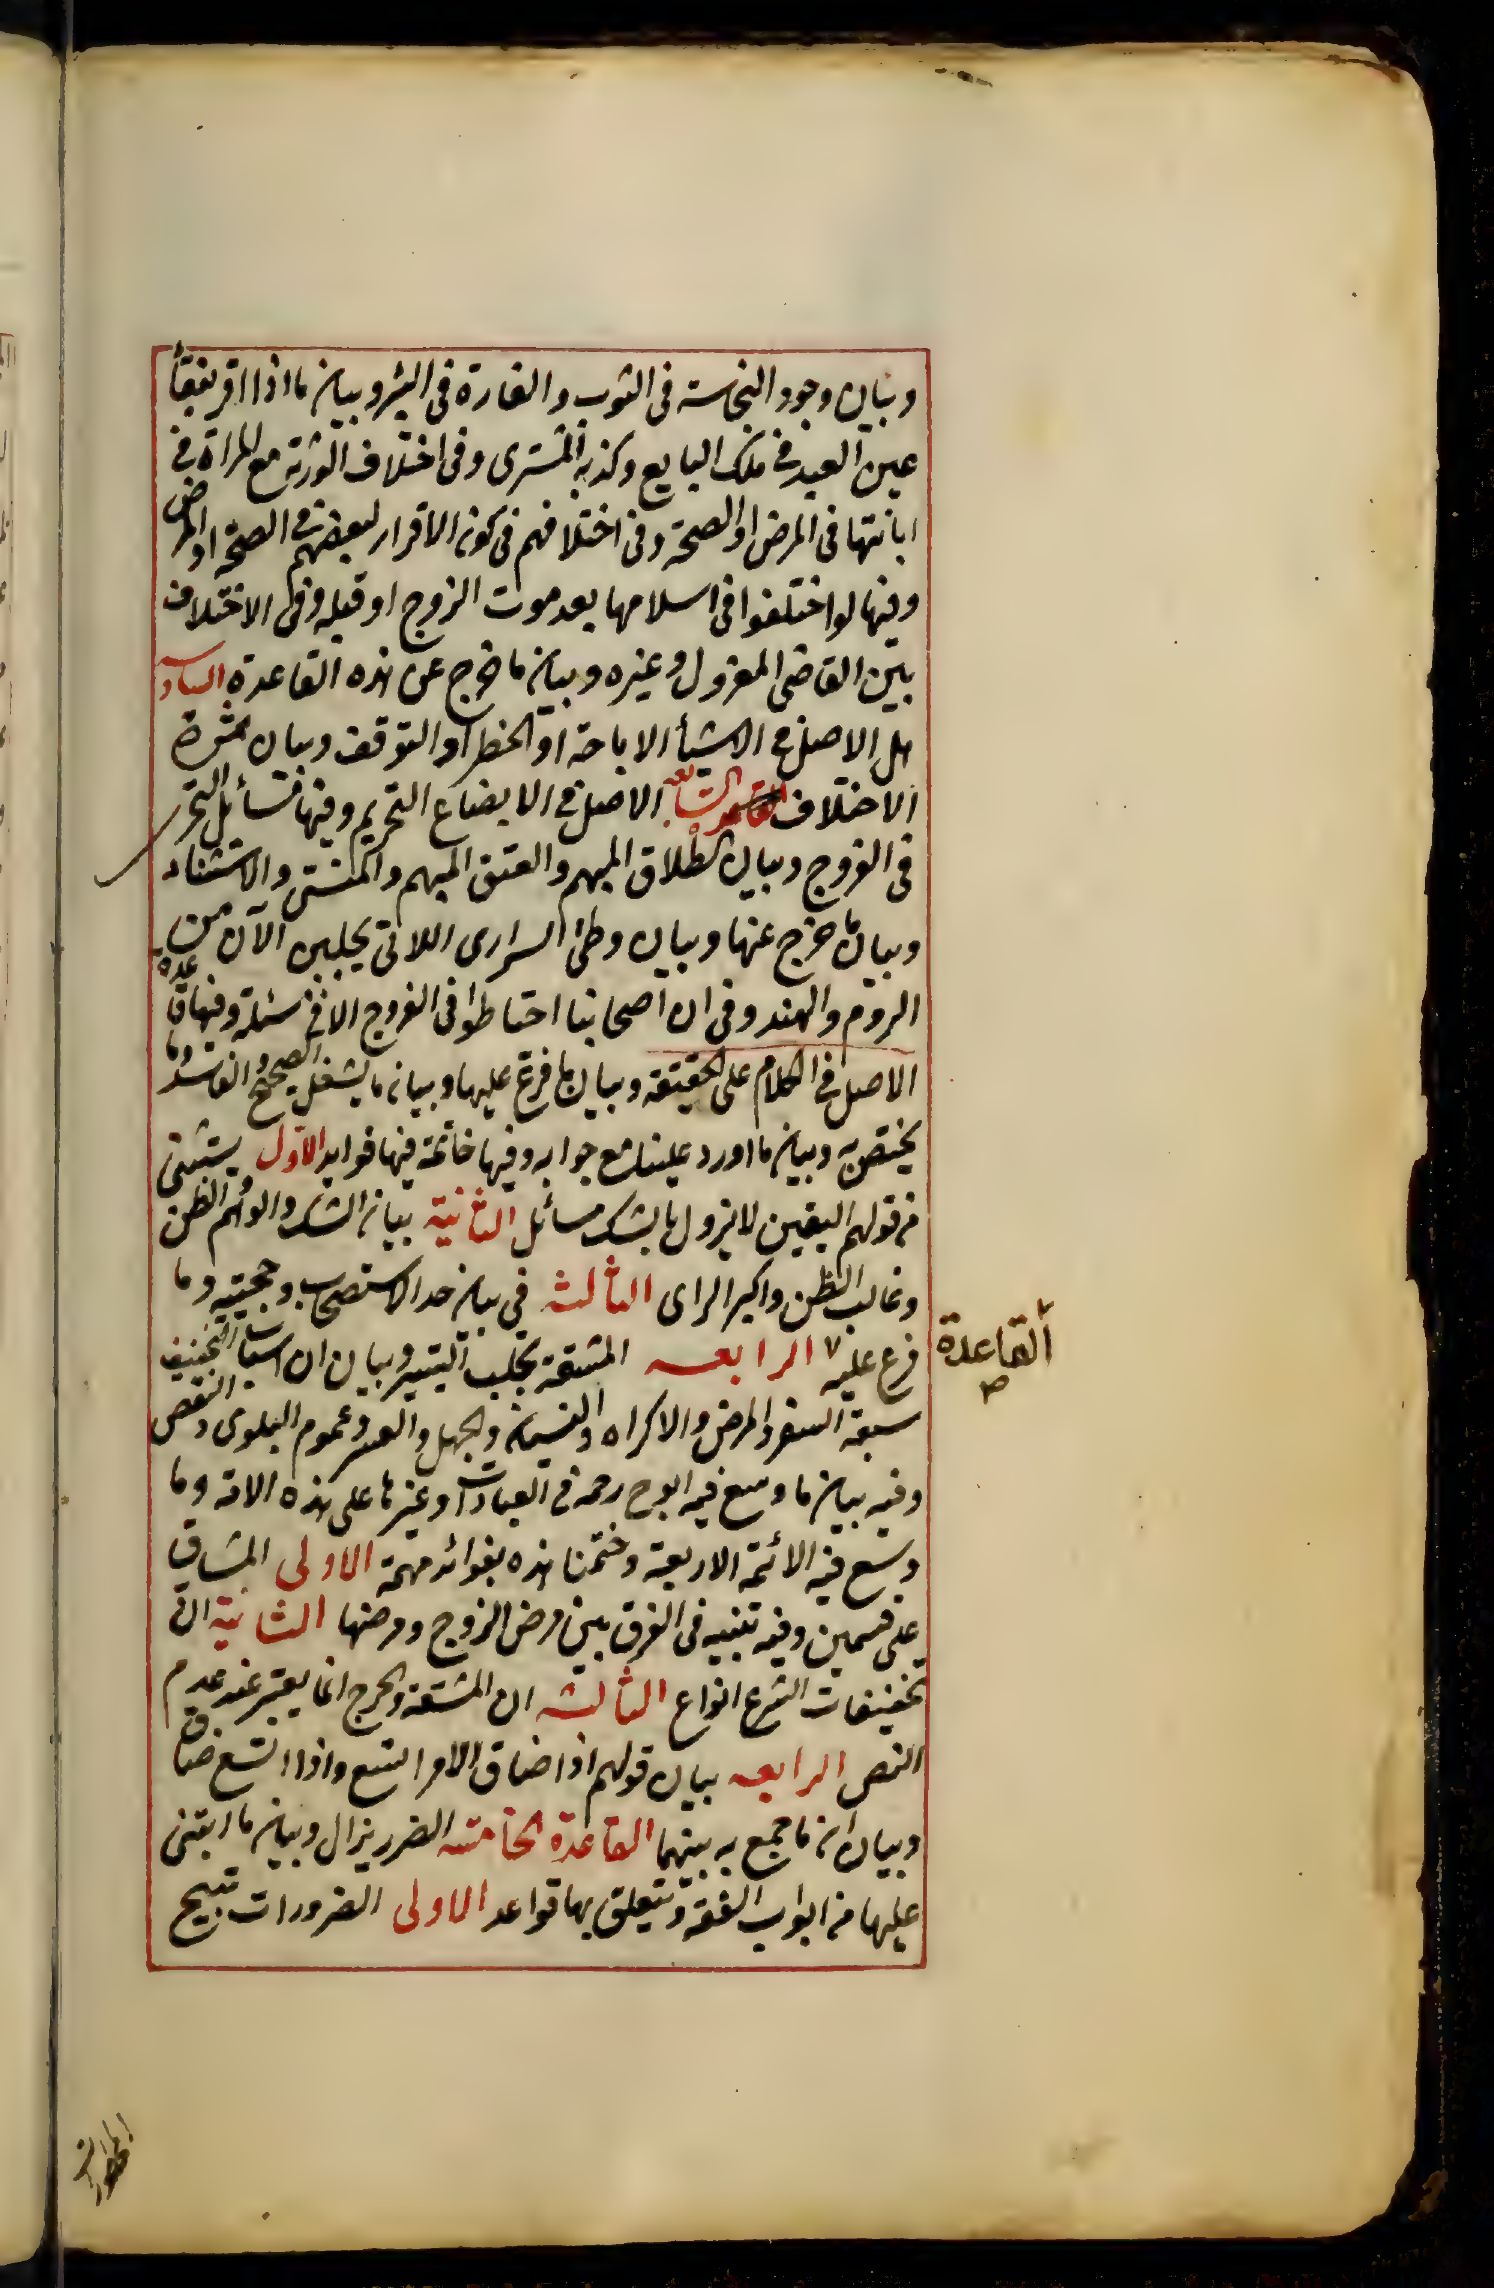 وبيان وجود النجاسة في الثوب والفارة في البئر وبيان ما اذا اقر بفقأ
عين العبد في ملك البايع وكذبه المشترى وفي اختلاف الورثة مع المراة في
ابانتها في المرض او الصحة وفي اختلافهم في كون الاقرار لبعضهم في الصحة او المرض
وفيما لو اختلفوا في اسلامها بعد موت الزوج او قبله وفي الاختلاف
بين القاضي المعزول وغيره وبيان ما خرج عن هذه القاعدة السادسة
هل الاصل في الاشيأ الاباحة او الحظر او التوقف وبيان ثمرة
الاختلاف القاعدة السابعة الاصل في الابضاع التحريم وفيها مسائل التحرى
في الفروج وبيان الطلاق المبهم والعتق المبهم والمنسى والاستثناء
وبيان ما خرج عنها وبيان وطئ السرارى اللاتى يجلبن الآن من
الروم والهند وفي ان اصحابنا احتاطوا في الفروج الا في مسئلة وفيها قاعدة
الاصل في الكلام على الحقيقة وبيان ما فرع عليها وبيان ما يشمل الصحيح والفاسد وما
يختص به وبيان ما اورد علينا مع جوابه وفيها خاتمة فيها فوايد الاول يستثنى
من قولهم اليقين لا يزول بالشك مسائل الثانية بيان الشك والوهم والظن
وغالب الظن واكبر الراى الثالثة في بيان حد الاستصحاب وحجيته وما
فرع عليه الرابعه المشقة تجلب التيسير وبيان ان اسباب التخفيف
القاعدة صح
سبعة السفر والمرض والاكراه والنسيان والجهل والعسر وعموم البلوى والنقص
وفيه بيان ما وسع فيه ابوح رحمه في العبادات وغيرها على هذه الامة وما
وسع فيه الائمة الاربعة وختمنا هذه بفوائد مهمة الاولى المشاق
على قسمين وفيه تنبيه في الفرق بين مرض الزوج ومرضها الثانية ان
تخفيفات الشرع انواع الثالثه ان المشقة والحرج انما يعتبر عند عدم
النص الرابعه بيان قولهم اذا ضاق الامر اتسع واذا اتسع ضاق
وبيان ان ما جمع به بينهما القاعدة الخامسه الضرر يزال وبيان ما ابتنى
عليها من ابواب الفقه وتتعلق بها قواعد الاولى الضرورات تبيح
المحظورات